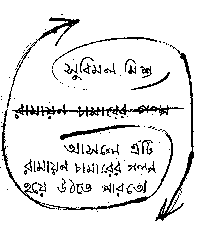 সুবিমল মিশ্র
রামায়ন চামারের গল্প
আসলে এটি
রামায়ন চামারের গল্প
হয়ে উঠতে পারতো